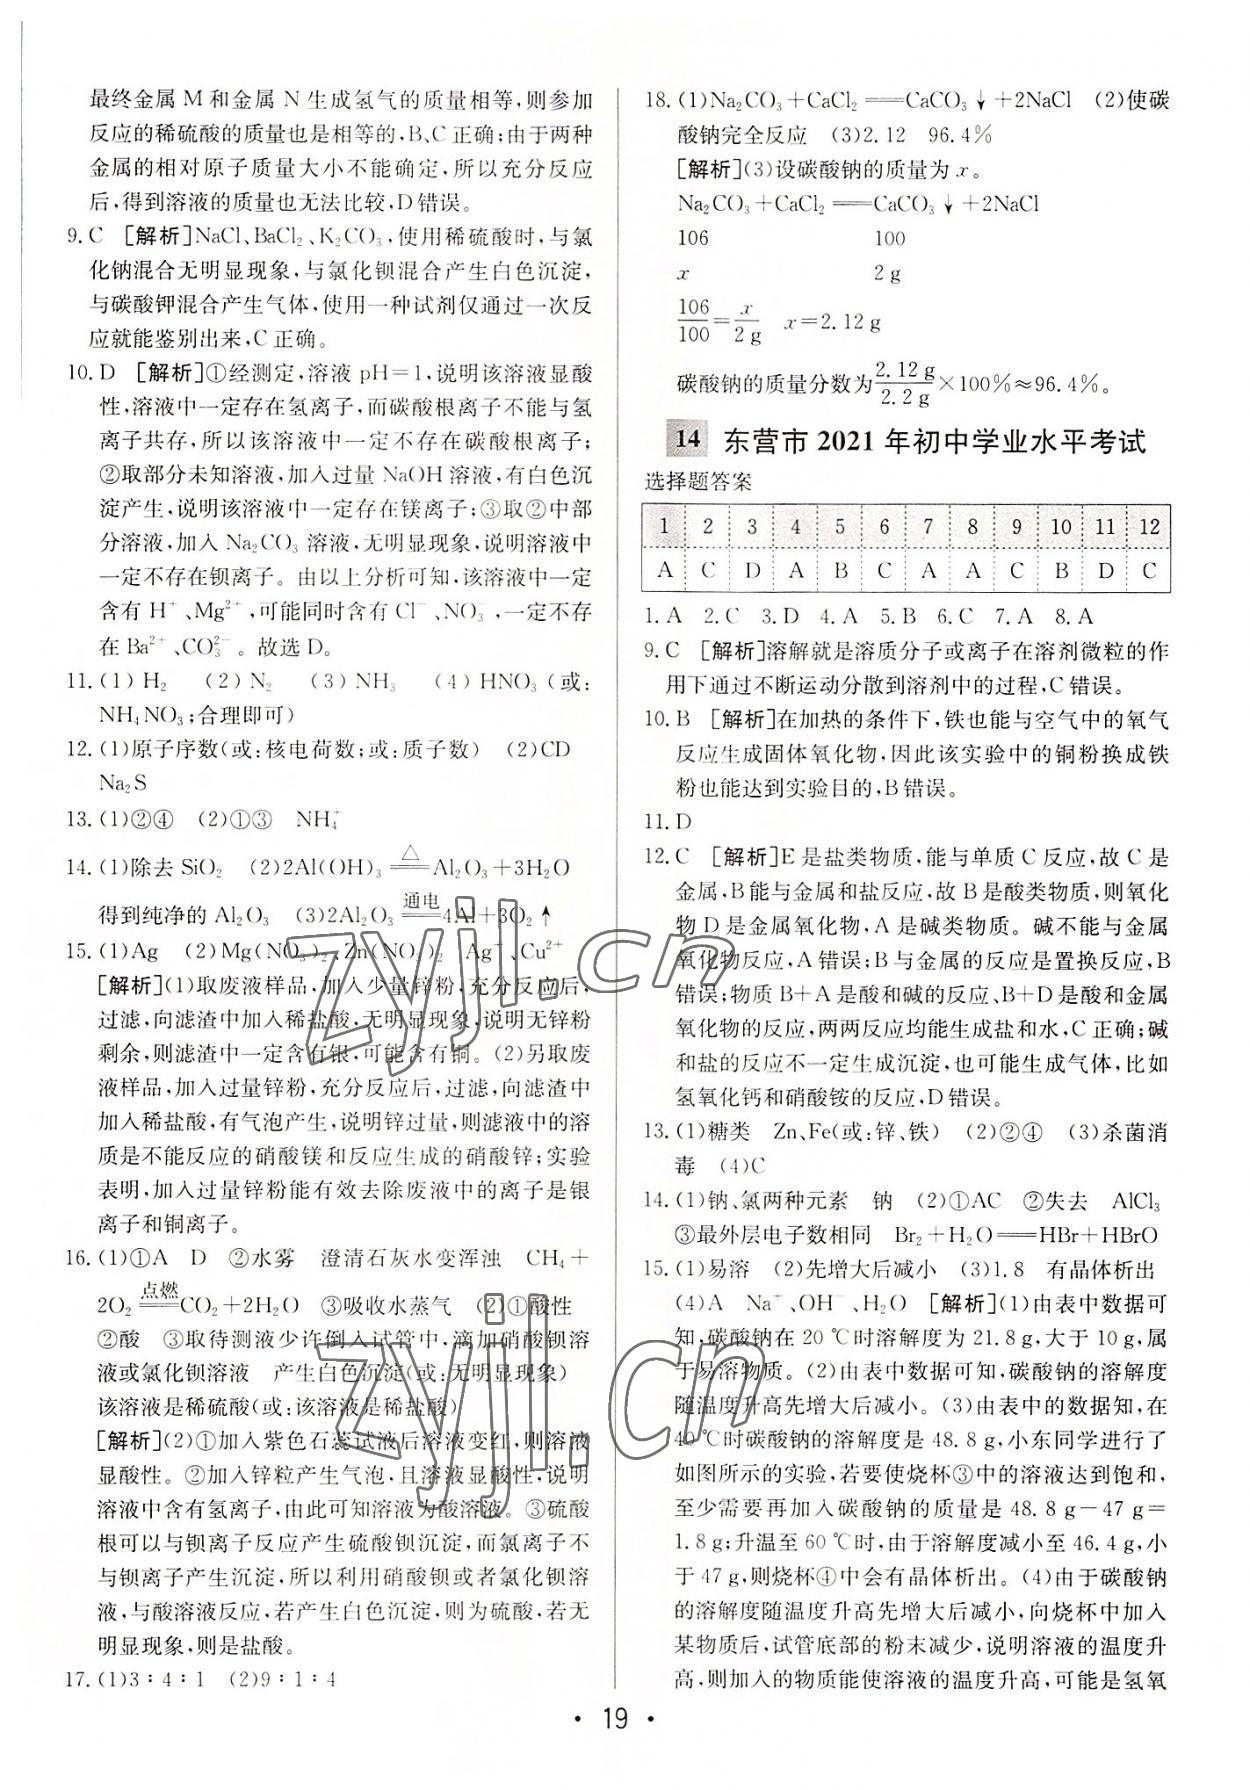 最终金属 M 和金属 N 生成氢气的质量相等,则参加
反应的稀硫酸的质量也是相等的,B、C 正确;由于两种
金属的相对原子质量大小不能确定,所以充分反应
后,得到溶液的质量也无法比较,D 错误。
9. C [解析]NaCl、BaCl₂、K₂CO₃,使用稀硫酸时,与氯
化钠混合无明显现象,与氯化钡混合产生白色沉淀,
与碳酸钾混合产生气体,使用一种试剂仅通过一次反
应就能鉴别出来,C 正确。
10. D [解析]①经测定,溶液 pH=1,说明该溶液显酸
性,溶液中一定存在氢离子,而碳酸根离子不能与氢
离子共存,所以该溶液中一定不存在碳酸根离子;
②取部分未知溶液,加入过量 NaOH 溶液,有白色沉
淀产生,说明溶液中一定存在镁离子;③取②中部
分溶液,加入 Na₂CO₃ 溶液,无明显现象,说明溶液中
一定不存在钡离子。由以上分析可知,该溶液中一定
含有 H⁺、Mg²⁺,可能同时含有 Cl⁻、NO₃⁻,一定不存
在 Ba²⁺、CO₃²⁻。故选 D。
11. (1) H₂ (2) N₂ (3) NH₃ (4) HNO₃ (或:
NH₄NO₃;合理即可)
12. (1)原子序数(或:核电荷数;或:质子数) (2)CD
Na₂S
13. (1)②④ (2)①③ NH₄⁺
14. (1)除去 SiO₂ (2)2Al(OH)₃ =△= Al₂O₃+3H₂O
得到纯净的 Al₂O₃ (3)2Al₂O₃ =通电= 4Al+3O₂↑
15. (1)Ag (2)Mg(NO₃)₂、Zn(NO₃)₂ Ag⁺、Cu²⁺
[解析](1)取废液样品,加入少量锌粉,充分反应后,
过滤,向滤渣中加入稀盐酸,无明显现象,说明无锌粉
剩余,则滤渣中一定含有银,可能含有铜。(2)另取废
液样品,加入过量锌粉,充分反应后,过滤,向滤渣中
加入稀盐酸,有气泡产生,说明锌过量,则滤液中的溶
质是不能反应的硝酸镁和反应生成的硝酸锌;实验
表明,加入过量锌粉能有效去除废液中的离子是银
离子和铜离子。
16. (1)①A D ②水雾 澄清石灰水变浑浊 CH₄+
2O₂ =点燃= CO₂+2H₂O ③吸收水蒸气 (2)①酸性
②酸 ③取待测液少许倒入试管中,滴加硝酸钡溶
液或氯化钡溶液 产生白色沉淀(或:无明显现象)
该溶液是稀硫酸(或:该溶液是稀盐酸)
[解析](2)①加入紫色石蕊试液后溶液变红,则溶液
显酸性。②加入锌粒产生气泡,且溶液显酸性,说明
溶液中含有氢离子,由此可知溶液为酸溶液。③硫酸
根可以与钡离子反应产生硫酸钡沉淀,而氯离子不
与钡离子产生沉淀,所以利用硝酸钡或者氯化钡溶
液,与酸溶液反应,若产生白色沉淀,则为硫酸,若无
明显现象,则是盐酸。
17. (1)3∶4∶1 (2)9∶1∶4
18. (1)Na₂CO₃+CaCl₂══CaCO₃↓+2NaCl (2)使碳
酸钠完全反应 (3)2.12 96.4%
[解析](3)设碳酸钠的质量为 x。
Na₂CO₃+CaCl₂══CaCO₃↓+2NaCl
106 100
x 2 g
106/100=x/2 g x=2.12 g
碳酸钠的质量分数为2.12 g/2.2 g×100%≈96.4%。
14 东营市 2021 年初中学业水平考试
选择题答案
1 2 3 4 5 6 7 8 9 10 11 12
A C D A B C A A C B D C
1. A 2. C 3. D 4. A 5. B 6. C 7. A 8. A
9. C [解析]溶解就是溶质分子或离子在溶剂微粒的作
用下通过不断运动分散到溶剂中的过程,C 错误。
10. B [解析]在加热的条件下,铁也能与空气中的氧气
反应生成固体氧化物,因此该实验中的铜粉换成铁
粉也能达到实验目的,B 错误。
11. D
12. C [解析]E 是盐类物质,能与单质 C 反应,故 C 是
金属,B 能与金属和盐反应,故 B 是酸类物质,则氧化
物 D 是金属氧化物,A 是碱类物质。碱不能与金属
氧化物反应,A 错误;B 与金属的反应是置换反应,B
错误;物质 B+A 是酸和碱的反应、B+D 是酸和金属
氧化物的反应,两两反应均能生成盐和水,C 正确;碱
和盐的反应不一定生成沉淀,也可能生成气体,比如
氢氧化钙和硝酸铵的反应,D 错误。
13. (1)糖类 Zn、Fe(或:锌、铁) (2)②④ (3)杀菌消
毒 (4)C
14. (1)钠、氯两种元素 钠 (2)①AC ②失去 AlCl₃
③最外层电子数相同 Br₂+H₂O══HBr+HBrO
15. (1)易溶 (2)先增大后减小 (3)1.8 有晶体析出
(4)A Na⁺、OH⁻、H₂O [解析](1)由表中数据可
知,碳酸钠在 20 ℃时溶解度为 21.8 g,大于 10 g,属
于易溶物质。(2)由表中数据可知,碳酸钠的溶解度
随温度升高先增大后减小。(3)由表中的数据知,在
40 ℃时碳酸钠的溶解度是 48.8 g,小东同学进行了
如图所示的实验,若要使烧杯③中的溶液达到饱和,
至少需要再加入碳酸钠的质量是 48.8 g-47 g=
1.8 g;升温至 60 ℃时,由于溶解度减小至 46.4 g,小
于 47 g,则烧杯④中会有晶体析出。(4)由于碳酸钠
的溶解度随温度升高先增大后减小,向烧杯中加入
某物质后,试管底部的粉末减少,说明溶液的温度升
高,则加入的物质能使溶液的温度升高,可能是氢氧
· 19 ·
zyjl.cn
zyjl.cn